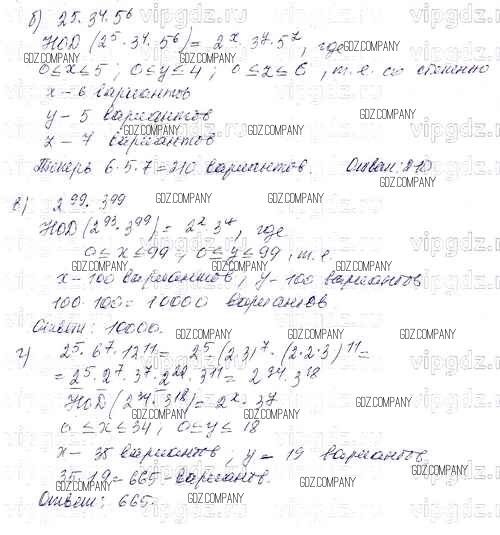 б) 2⁵·3⁴·5⁶
НОД (2⁵·3⁴·5⁶) = 2ˣ·3ʸ·5ᶻ, где
0≤x≤5; 0≤y≤4; 0≤z≤6, т.е. со степенью
x – 6 вариантов
y – 5 вариантов
x – 7 вариантов
Теперь 6·5·7=210 вариантов. Ответ: 210
в) 2⁹⁹·3⁹⁹
НОД (2⁹³·3⁹⁹) = 2ˣ3ʸ, где
0≤x≤99, 0≤y≤99, т.е.
x – 100 вариантов, y – 100 вариантов
100·100 = 10000 вариантов
Ответ: 10000.
г) 2⁵·6⁷·12¹¹ = 2⁵·(2·3)⁷·(2·2·3)¹¹=
= 2⁵·2⁷·3⁷·2²²·3¹¹ = 2³⁴·3¹⁸
НОД (2³⁴·3¹⁸) = 2ˣ·3ʸ
0≤x≤34, 0≤y≤18
x – 35 вариантов, y = 19 вариантов
35·19 = 665 – вариантов.
Ответ: 665.
GDZ.COMPANY
vipgdz.ru